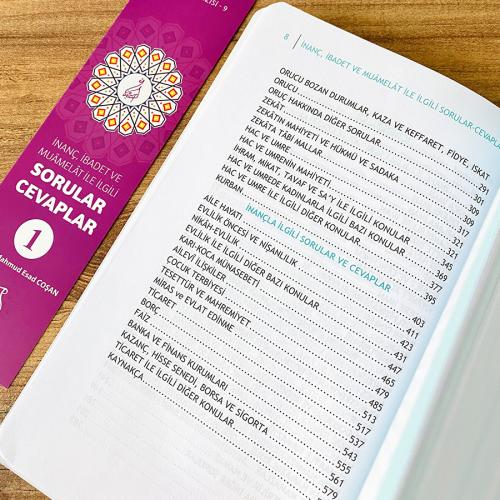 İNANÇ, İBADET VE
MUÂMELÂT İLE İLGİLİ
SORULAR
CEVAPLAR
1
Mahmud Esad COŞAN
8 | İNANÇ, İBADET VE MUÂMELÂT İLE İLGİLİ SORULAR-CEVAPLA
ORUCU BOZAN DURUMLAR, KAZA VE KEFFARET, FİDYE, ISKAT
ORUCU 291
ORUÇ HAKKINDA DİĞER SORULAR 301
ZEKÂT 309
ZEKÂTIN MAHİYETİ VE HÜKMÜ VE SADAKA 309
ZEKÂTA TÂBİ MALLAR 317
HAC VE UMRE 321
HAC VE UMRENİN MAHİYETİ 321
İHRAM, MİKAT, TAVAF VE SA'Y İLE İLGİLİ KONULAR 345
HAC VE UMREDE KADINLARLA İLGİLİ BAZI KONULAR 369
HAC VE UMRE İLE İLGİLİ DİĞER KONULAR 377
KURBAN 395
İNANÇLA İLGİLİ SORULAR VE CEVAPLAR
AİLE HAYATI
EVLİLİK ÖNCESİ VE NİŞANLILIK 403
NİKÂH-EVLİLİK 411
EVLİLİK İLE İLGİLİ DİĞER BAZI KONULAR 423
KARI-KOCA MÜNASEBETİ 431
AİLEVİ İLİŞKİLER 447
ÇOCUK TERBİYESİ 465
TESETTÜR VE MAHREMİYET 479
MİRAS VE EVLAT EDİNME 485
TİCARET 513
BORÇ 517
FAİZ 537
BANKA VE FİNANS KURUMLARI 543
KAZANÇ, HİSSE SENEDİ, BORSA VE SİGORTA 555
TİCARET İLE İLGİLİ DİĞER KONULAR 561
KAYNAKÇA 579